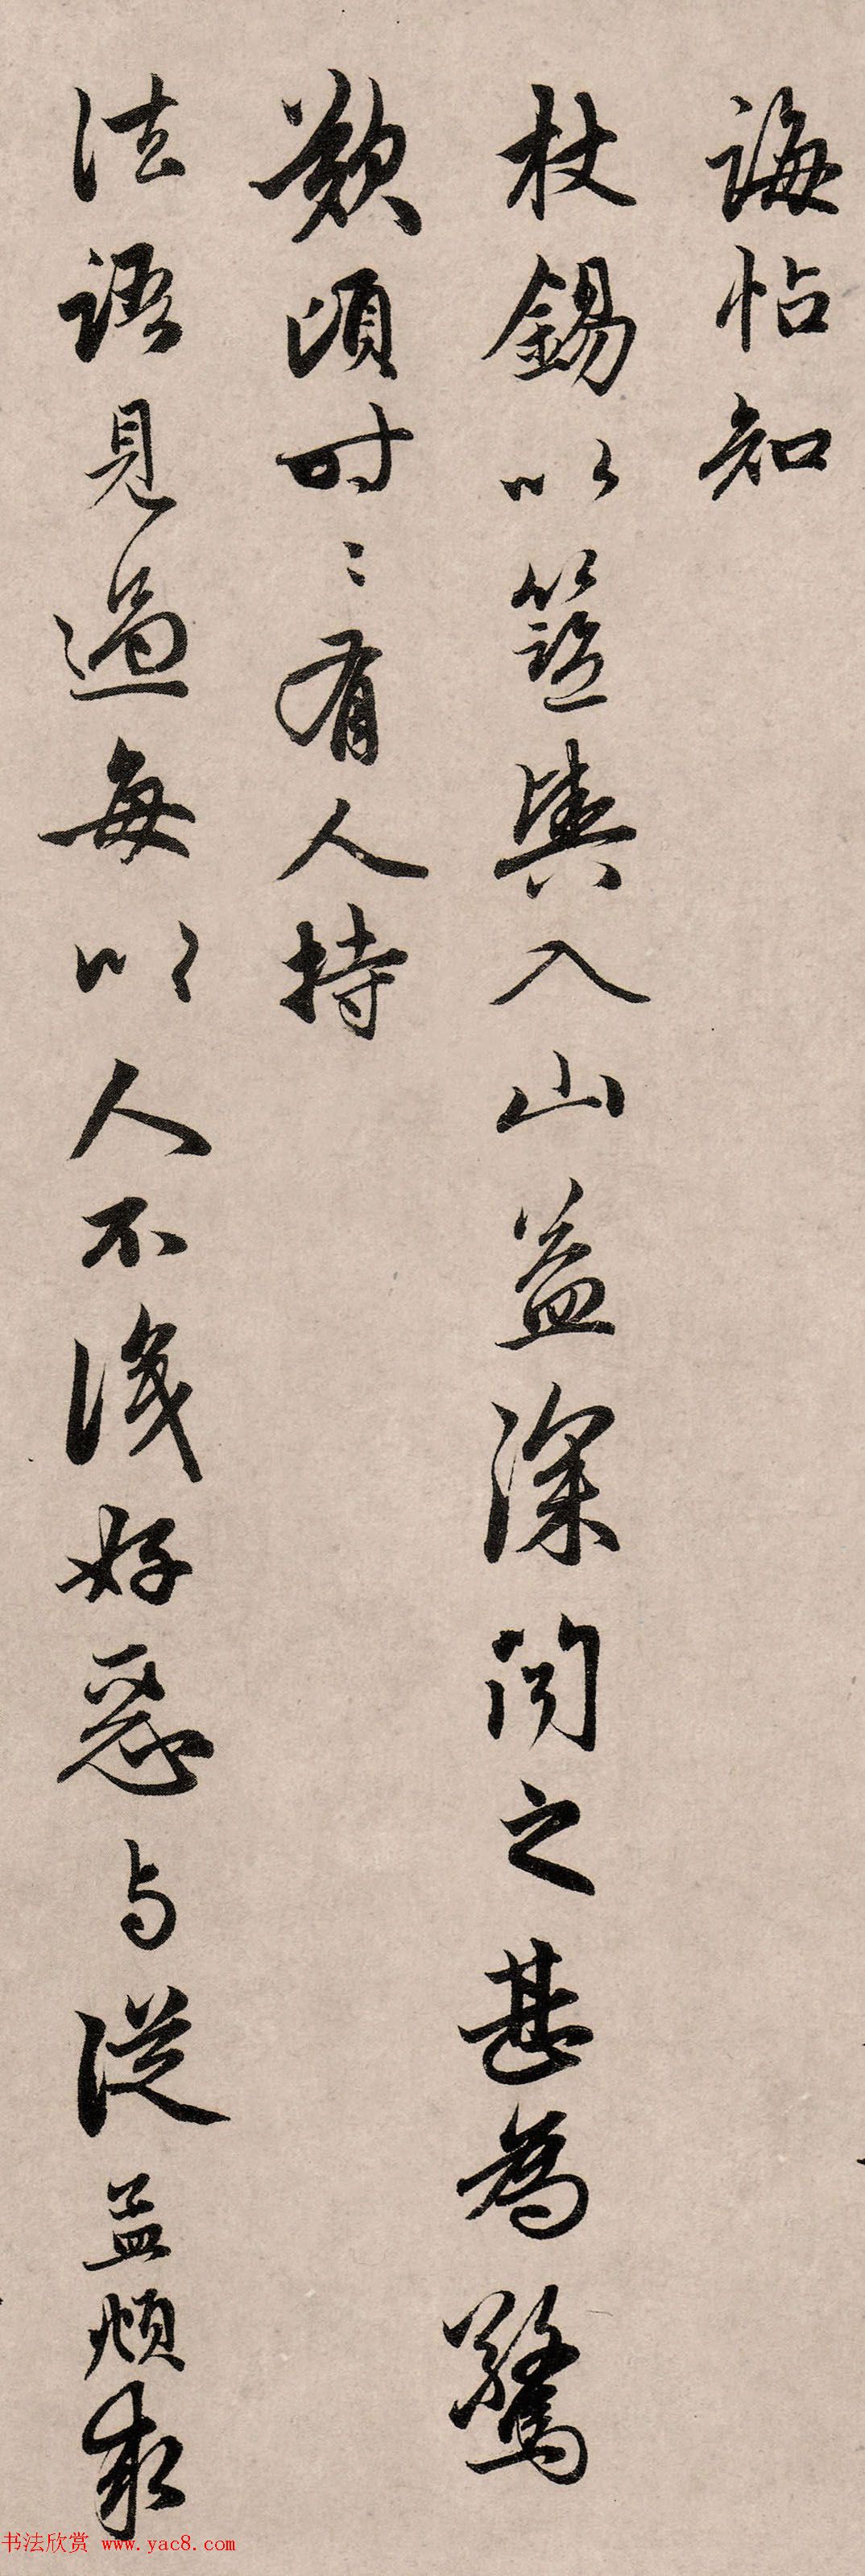 誨帖知
杖錫以籃輿入山益深聞之甚為驚
歎頃时〻有人持
法語見過每以人不識好惡与從孟頫求
书法欣赏 www.yac8.com